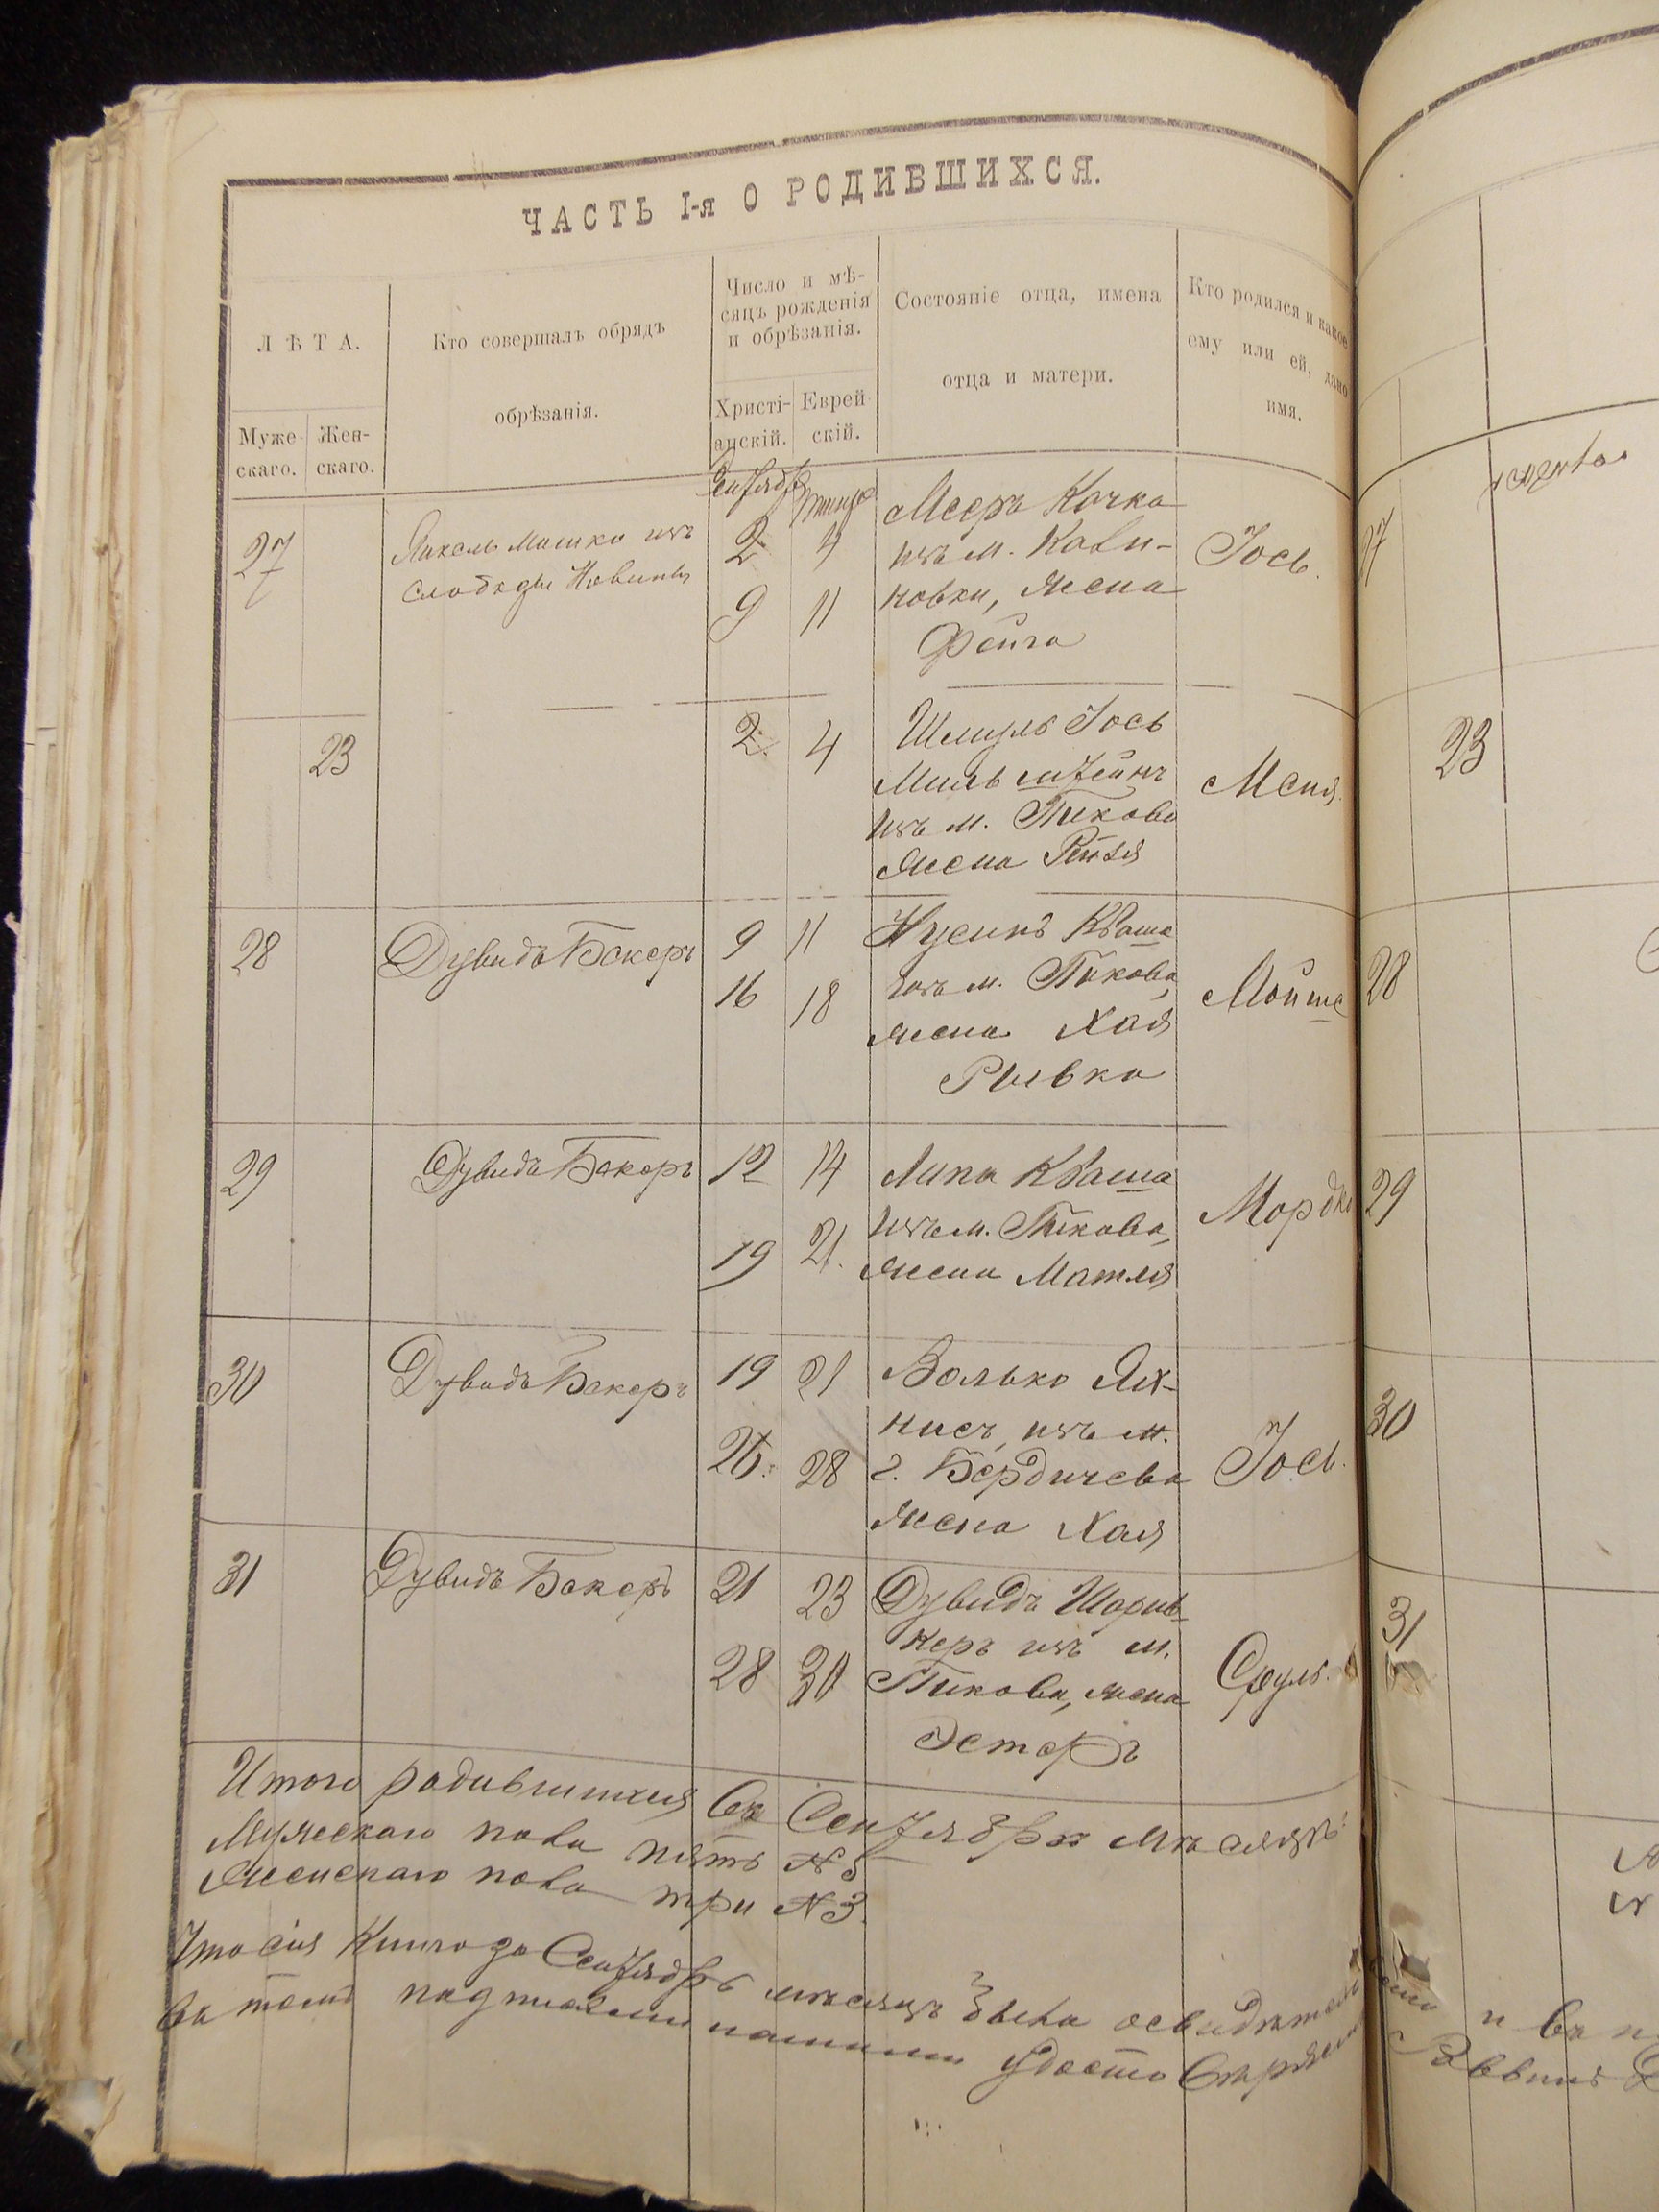 ЧАСТЬ I-я О РОДИВШИХСЯ.
ЛѢТА.
Муже-
скаго.
Жен-
скаго.
Кто совершалъ обрядъ
обрѣзанія.
Число и мѣ-
сяцъ рожденія
и обрѣзанія.
Христі-
анскій.
Еврей
скій.
Состояніе отца, имена
отца и матери.
Кто родился и какое
ему или ей, дано
имя.
Сентября
27
Янкель Мошко изъ
слободы Новины
2
4
9
11
Мееръ Качка
изъ м.
новки, жена
Фейга
Іось.
27
23
2.
4
Шмуль Іось
Мильштейнъ
изъ м. Пикова
жена Рейзя
Меня.
23
28
Дувидъ Бекеръ
9
11
16
18
Нусинъ Кваша
изъ м. Пикова,
жена Хая
Рывка
Мойше
28
29
Дувидъ Бекеръ
12
14
19
21.
Липа Кваша
изъ м. Пикова,
жена Матля
Мордко
29
30
Дувидъ Бекеръ
19
21
26.
28
Волько Ях-
нисъ, изъ м.
г. Бердичева
жена Хая
Іось.
30
31
Дувидъ Бекеръ
21
23
28
30
Дувидъ
керъ изъ м.
Пикова, жена
Эстеръ
Сруль.
31
Итого родившихся въ Сентябрѣ мѣсяцѣ:
Мужескаго пола пять № 5
Женскаго пола три № 3.
Что сія Книга за Сентябрь мѣсяцъ была
въ томъ подписами нашими
и въ